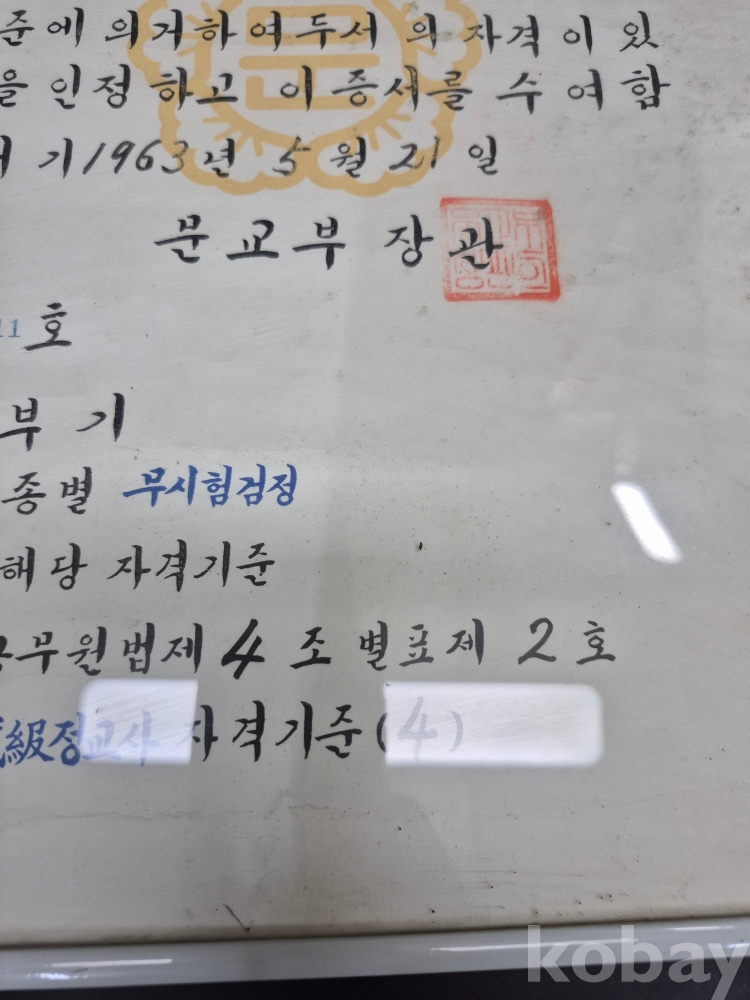 준에 의거하여 두서의 자격이 있
을 인정하고 이 증서를 수여함
기 1963년 5월 21일
문
문교부 장관
11 호
부기
종별 무시험검정
해당 자격기준
공무원법제 4 조 별표제 2 호
級정교사 자격기준 (4)
kobay